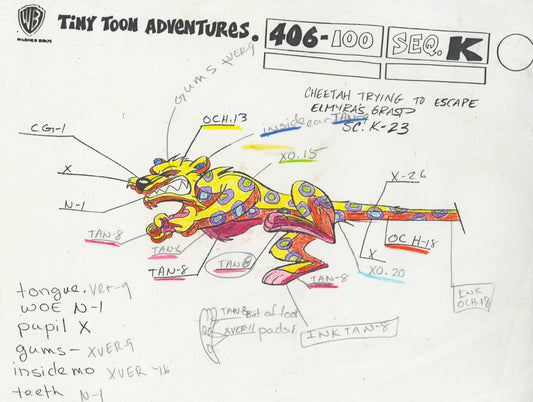 WB
WARNER BROS
TINY TOON ADVENTURES.
406-100
SEQ. K
CHEETAH TRYING TO ESCAPE
ELMYRA'S GRASP
SC. K-23
gums xver9
OCH.13
inside ear TAN-8
XO.15
CG-1
X
N-1
TAN-8
TAN-6
TAN-8
TAN 8
TAN-8
X-26
OCH-18
X
XO.20
INK
OCH.18
TAN 8 Bot of foot
XVER-11 pads
INK TAN-8
tongue. ver-9
WOE N-1
pupil X
gums - XVER9
inside mo XVER-16
teeth N-1